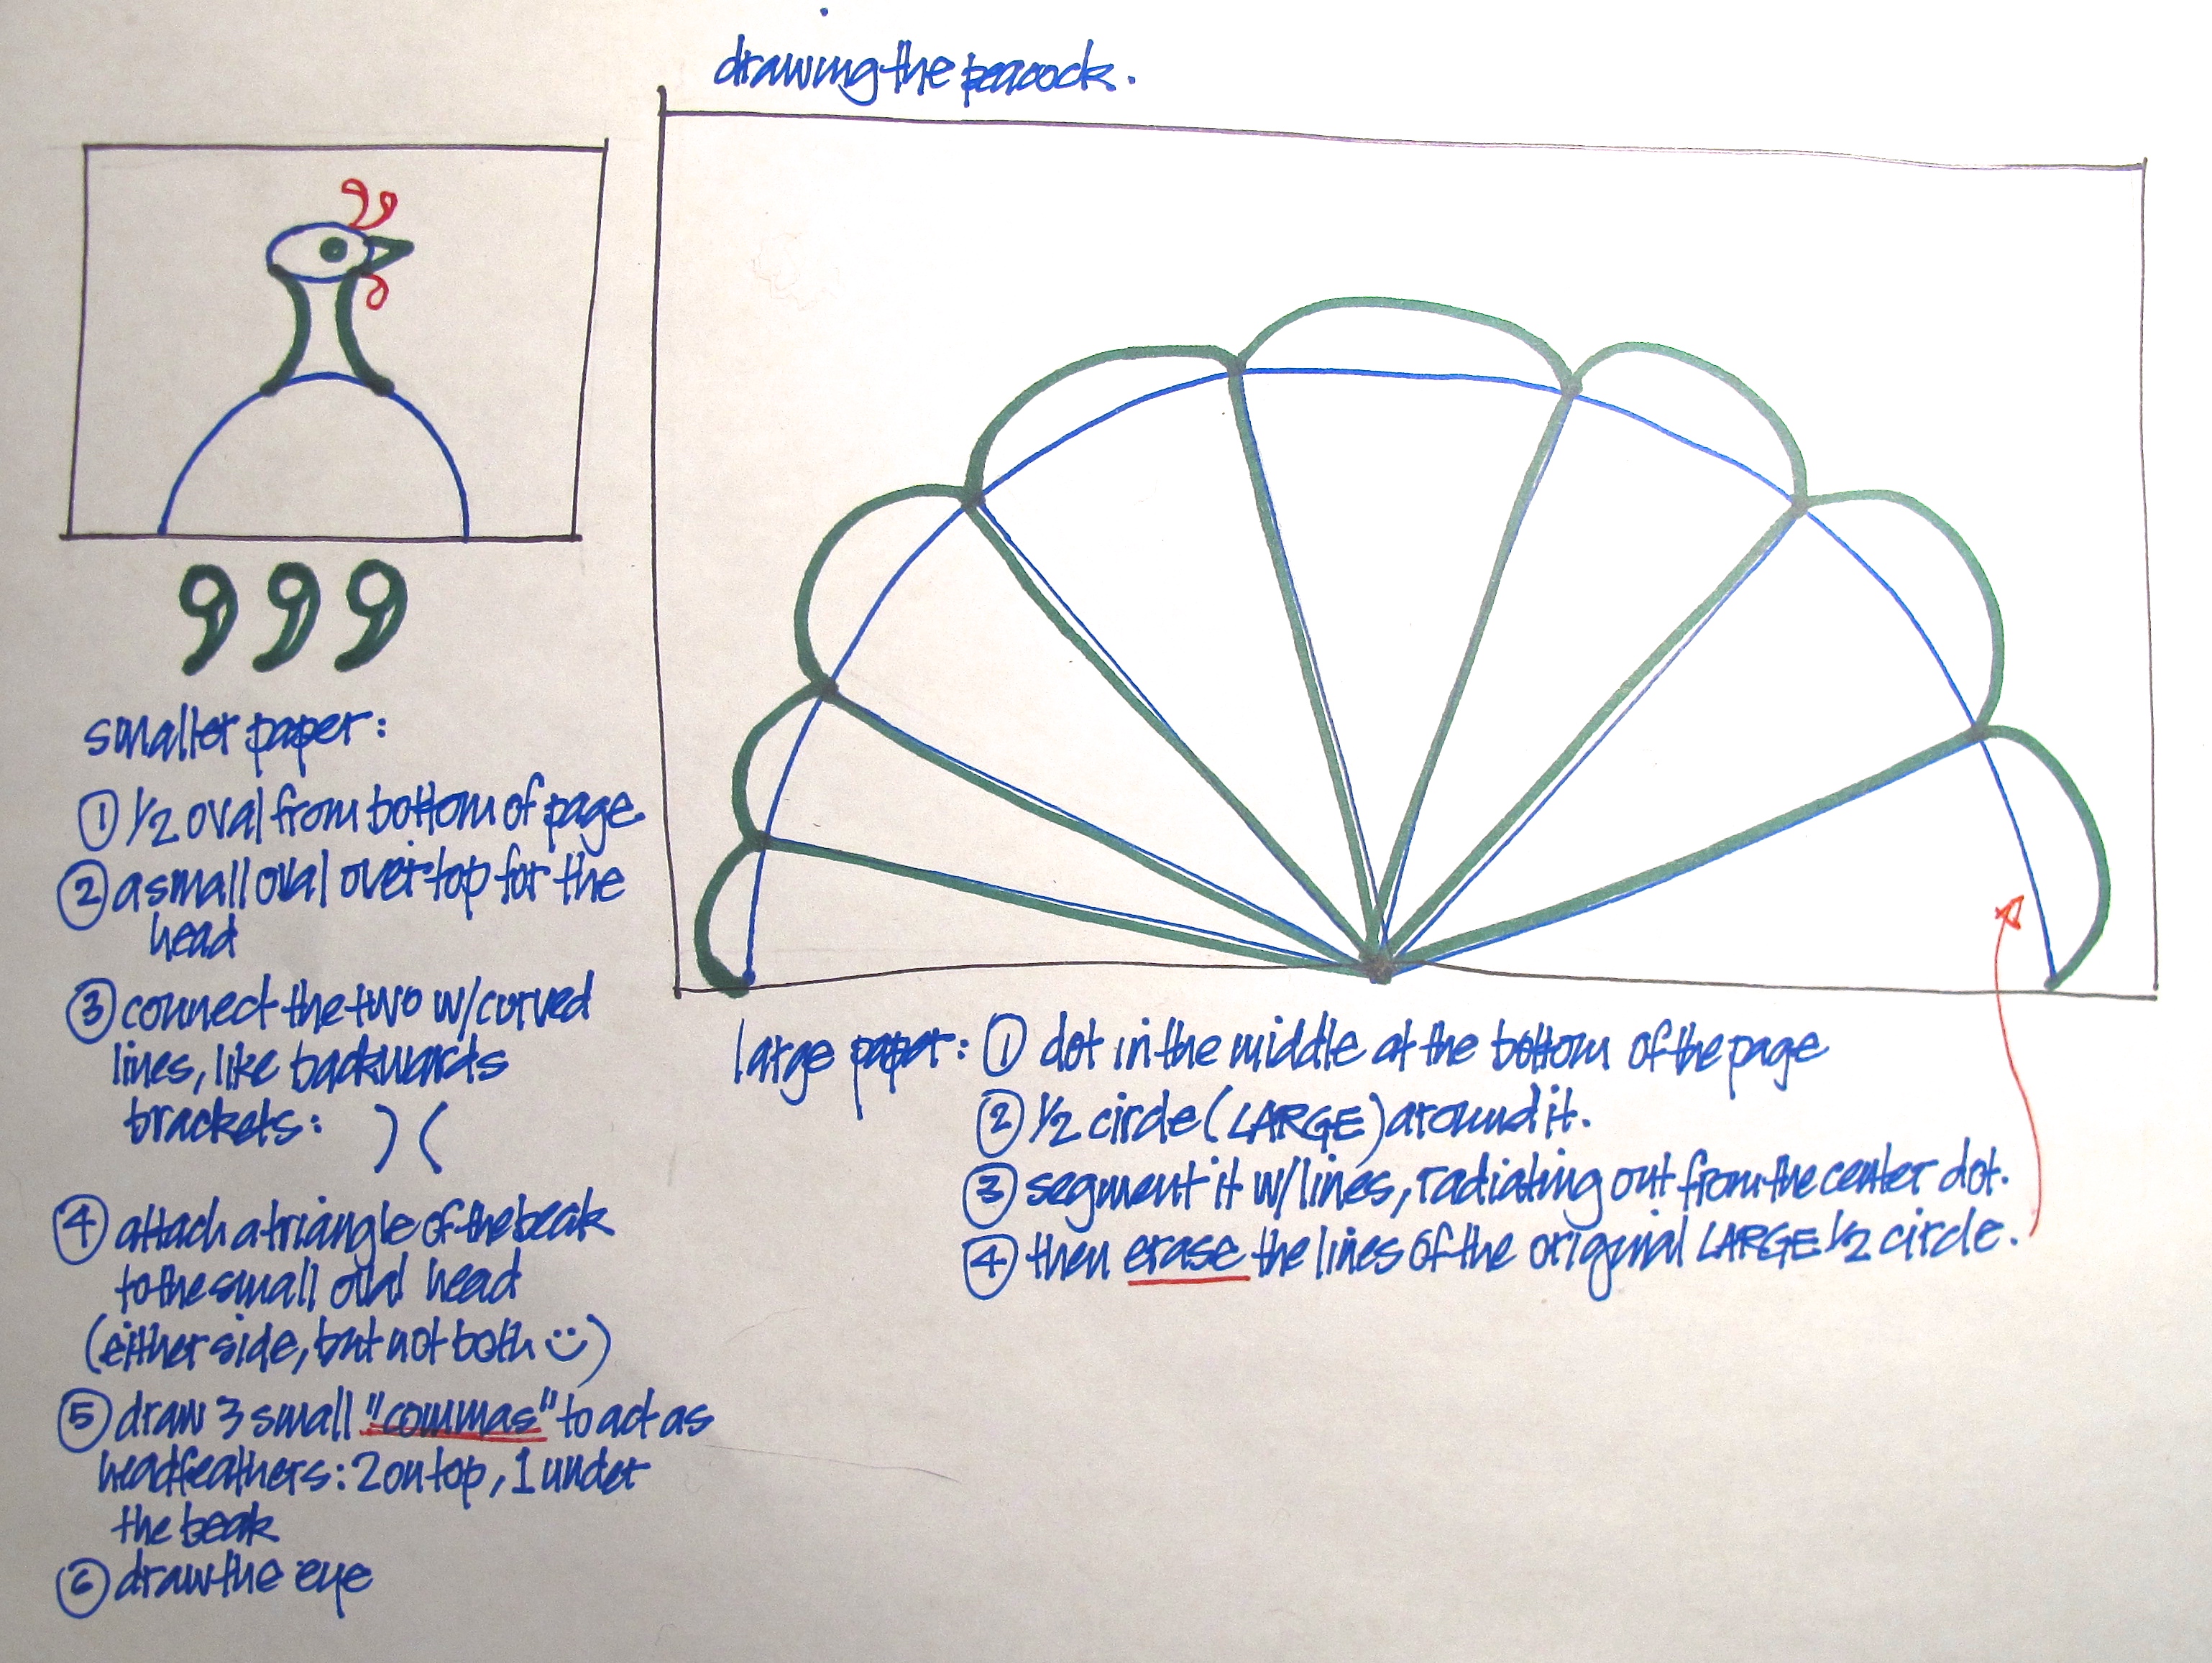 drawing the peacock.
smaller paper:
① 1/2 oval from bottom of page.
② a small oval over top for the
head
③ connect the two w/curved
lines, like backwards
brackets: ) (
④ attach a triangle of the beak
to the small oval head
(either side, but not both ☺)
⑤ draw 3 small "commas" to act as
headfeathers: 2 on top, 1 under
the beak
⑥ draw the eye
large paper: ① dot in the middle at the bottom of the page
② 1/2 circle (LARGE) around it.
③ segment it w/lines, radiating out from the center dot.
④ then erase the lines of the original LARGE 1/2 circle.